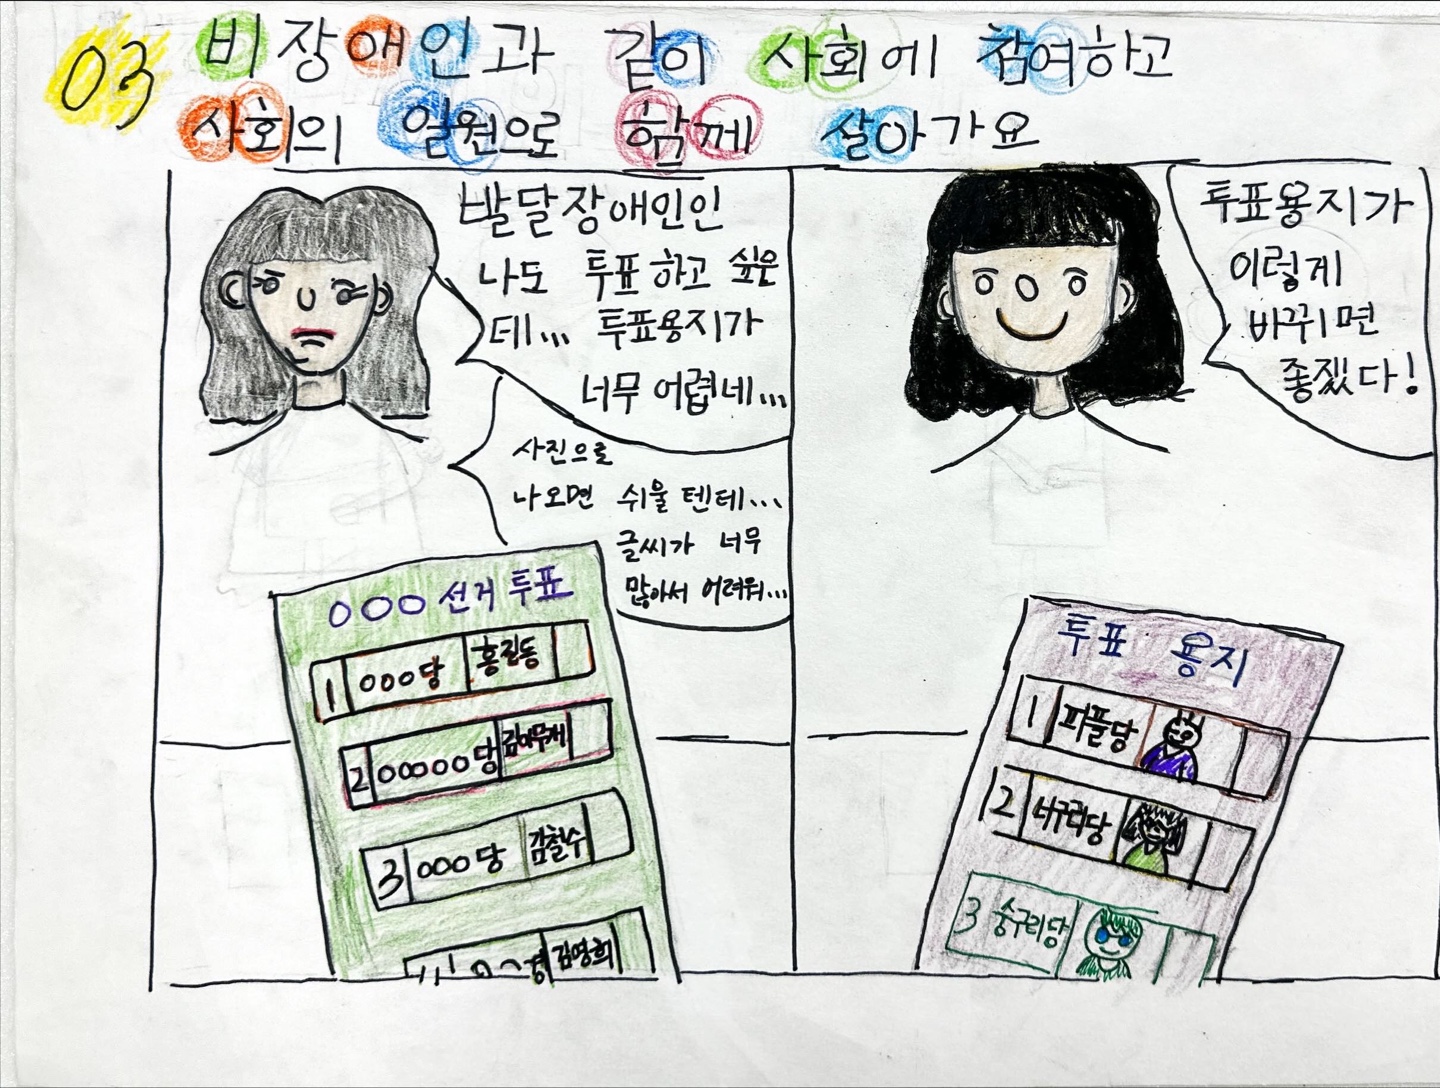 03 비장애인과 같이 사회에 참여하고
사회의 일원으로 함께 살아가요
발달장애인인
나도 투표하고 싶은
데... 투표용지가
너무 어렵네...
사진으로
나오면 쉬울 텐데...
글씨가 너무
많아서 어려워...
OOO 선거 투표
1 OOO당 홍길동
2 OOOOO당 김아무개
3 OOO당 김철수
김영희
투표용지가
이렇게
바뀌면
좋겠다!
투표 용지
1 피플당
2 너구리당
3 숭구리당